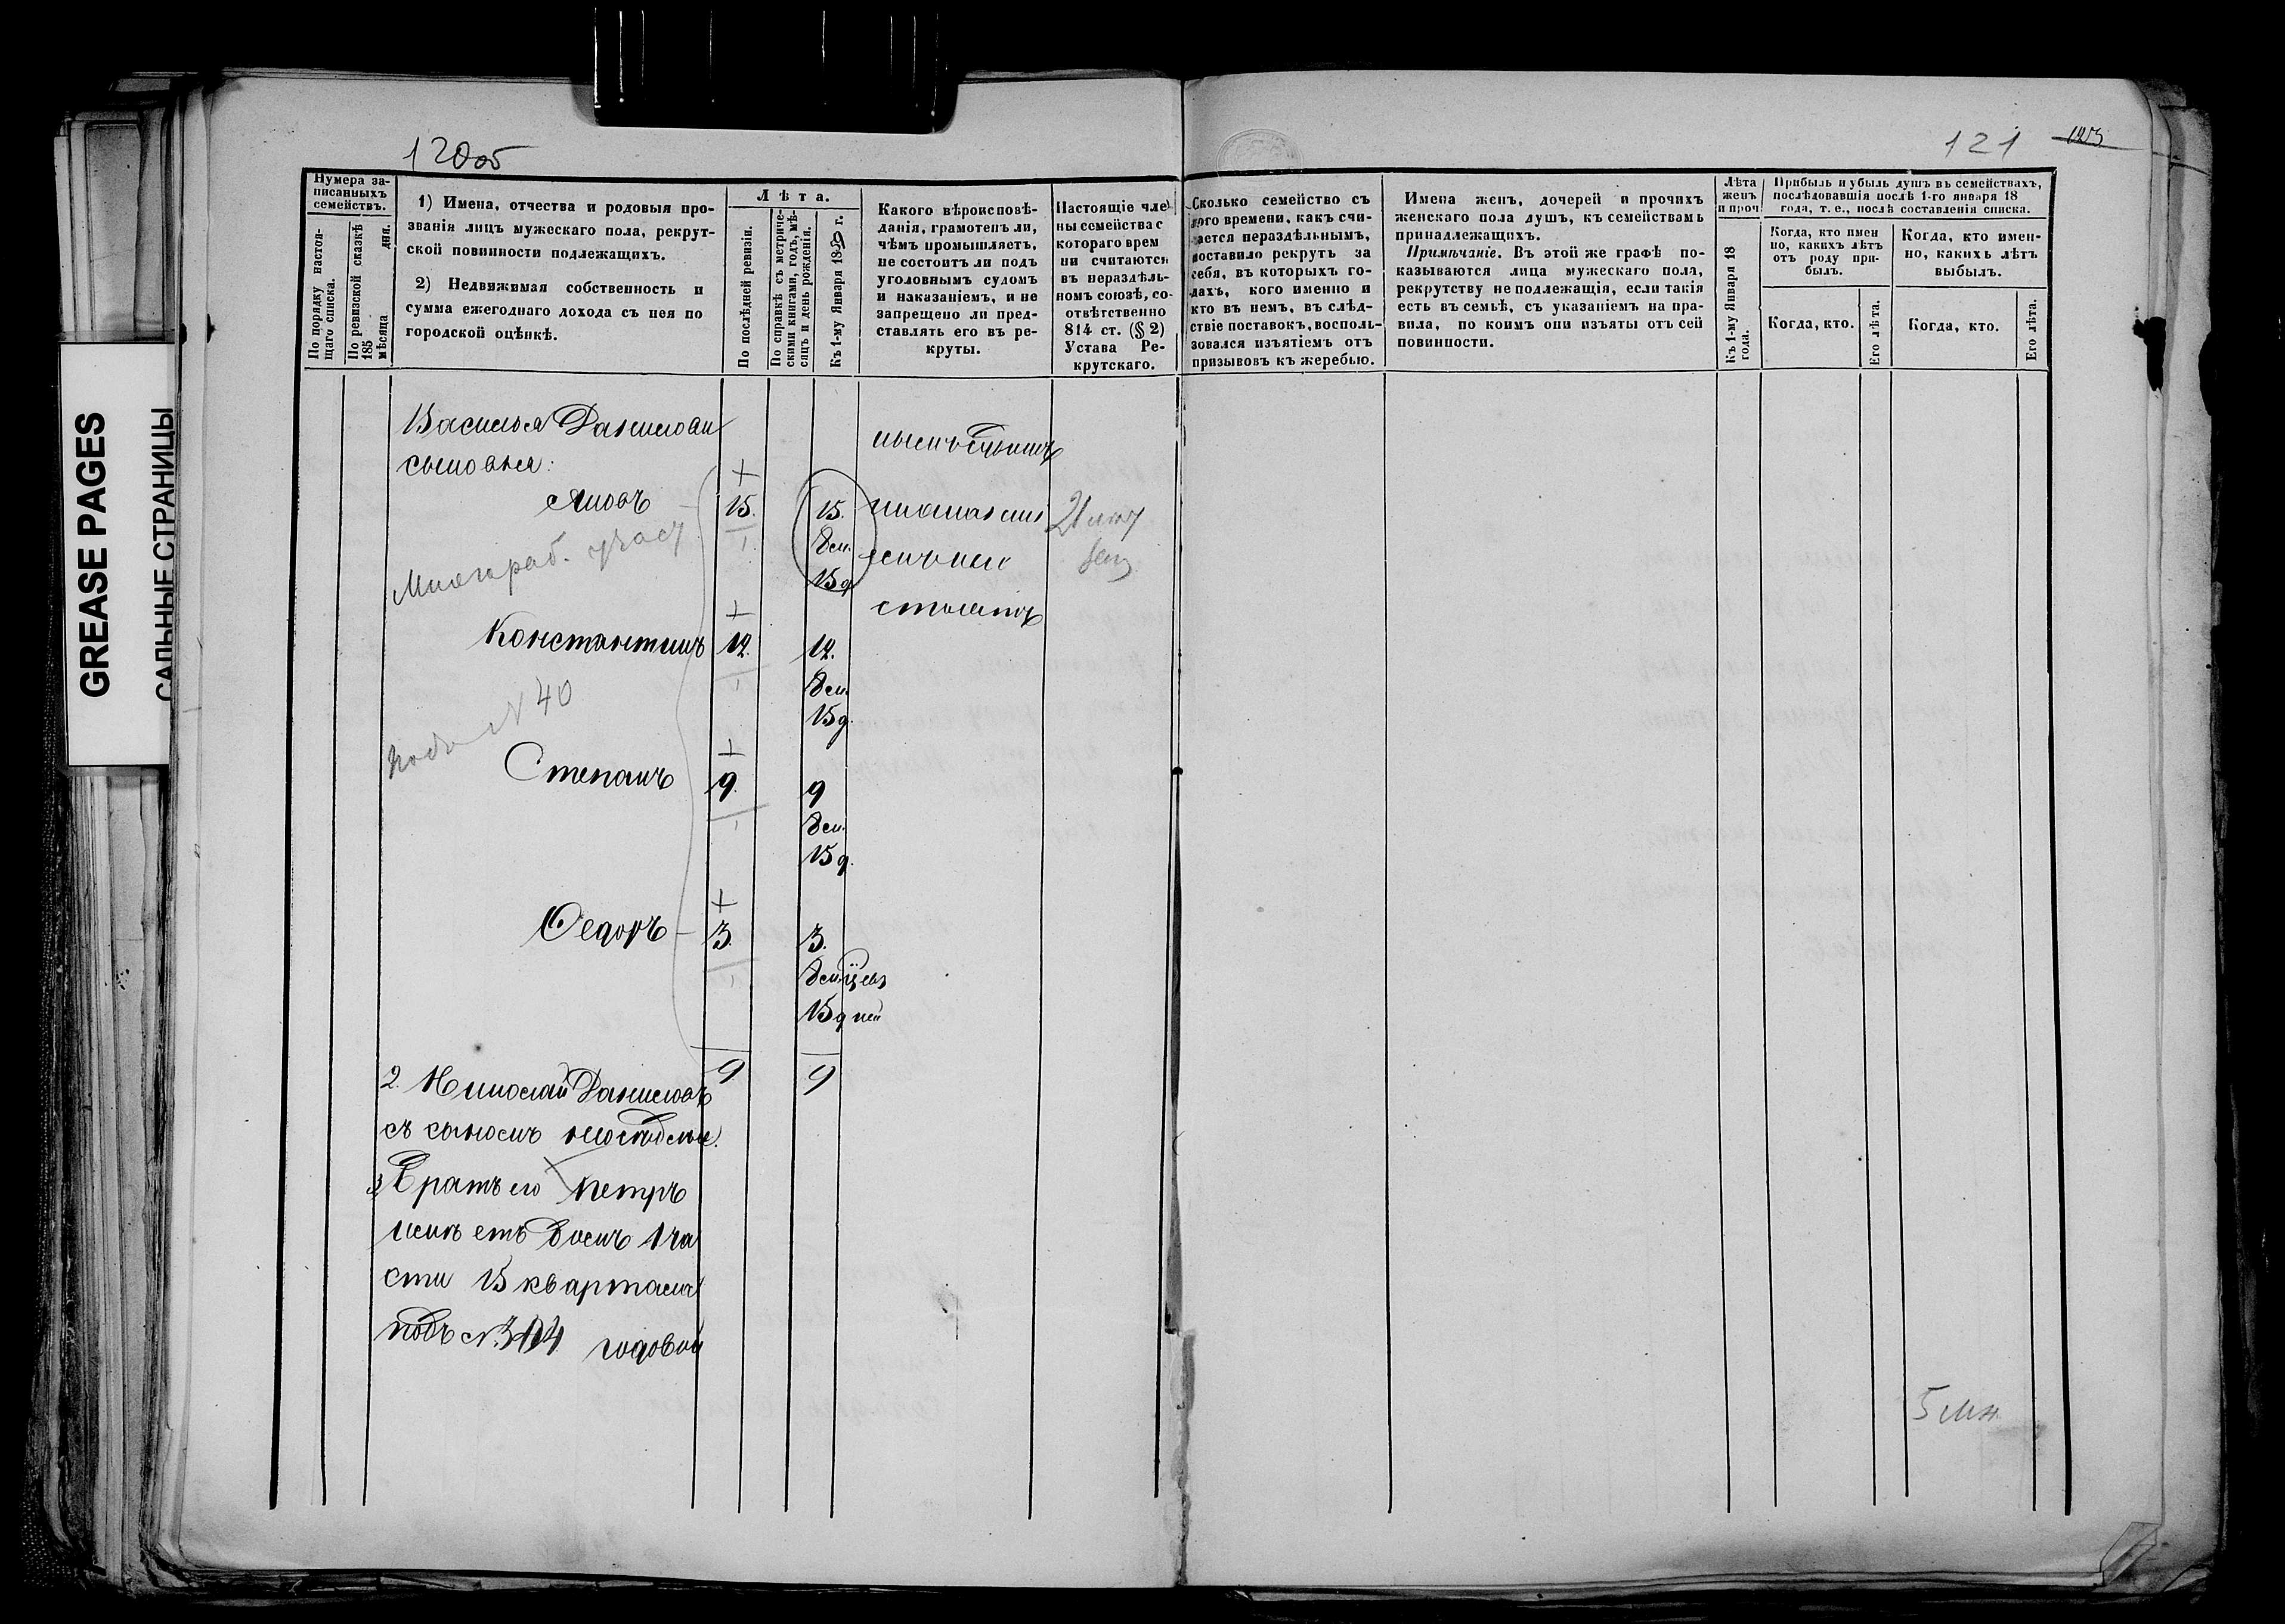 GREASE PAGES
САЛЬНЫЕ СТРАНИЦЫ
120об
Нумера за-
писанныхъ
семействъ.
По порядку настоя-
щаго списка.
По ревизской сказкѣ
185 дня.
мѣсяца
1) Имена, отчества и родовыя про-
званія лицъ мужескаго пола, рекрут-
ской повинности подлежащихъ.
2) Недвижимая собственность и
сумма ежегоднаго дохода съ нея по
городской оцѣнкѣ.
Лѣта.
По послѣдней ревизіи.
По справкѣ съ метриче-
скими книгами, годъ, мѣ-
сяцъ и день рожденія.
Къ 1-му Января 18 г.
Какого вѣроисповѣ-
данія, грамотенъ ли,
чѣмъ промышляетъ,
не состоитъ ли подъ
уголовнымъ судомъ
и наказаніемъ, и не
запрещено ли пред-
ставлять его въ ре-
круты.
Настоящіе чле
ны семейства с
котораго врем
ни считаются
въ нераздѣль-
номъ союзѣ, со-
отвѣтственно
814 ст. (§ 2)
Устава Ре-
крутскаго.
Василья Данилова
сыновья:
Яковъ 15. 15.
8 м.
15 д
Константинъ 12. 12.
8 м.
15 д.
№ 40
Степанъ 9. 9
8 м.
15 д.
Ѳедоръ 3. 3.
8 мѣсяц
15 дней
9 9
2. Николай Даниловъ
съ сыномъ
3 Братъ его Петръ
имѣетъ домъ 1 ча
сти 15 квартала
подъ № годовой
подъ
состоитъ
121
Сколько семейство съ
кого времени, какъ счи-
тается нераздѣльнымъ,
поставило рекрутъ за
себя, въ которыхъ го-
дахъ, кого именно и
кто въ немъ, въ слѣд-
ствіе поставокъ, восполь-
зовался изъятіемъ отъ
призывовъ къ жеребью.
Имена женъ, дочерей и прочихъ
женскаго пола душъ, къ семействамъ
принадлежащихъ.
Примѣчаніе. Въ этой же графѣ по-
казываются лица мужескаго пола,
рекрутству не подлежащія, если такія
есть въ семьѣ, съ указаніемъ на пра-
вила, по коимъ они изъяты отъ сей
повинности.
Лѣта
женъ
и проч
Къ 1-му Января 18
года.
Прибыль и убыль душъ въ семействахъ,
послѣдовавшія послѣ 1-го января 18
года, т. е., послѣ составленія списка.
Когда, кто имен
но, какихъ лѣтъ
отъ роду при-
былъ.
Когда, кто имен-
но, какихъ лѣтъ
выбылъ.
Когда, кто.
Его лѣта.
Когда, кто.
Его лѣта.